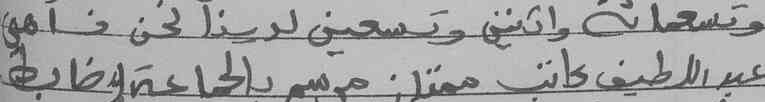 وتسعمائة واثنين وتسعين لدينا نحن
عبد اللطيف كاتب ممتاز مرسم بالجماعة